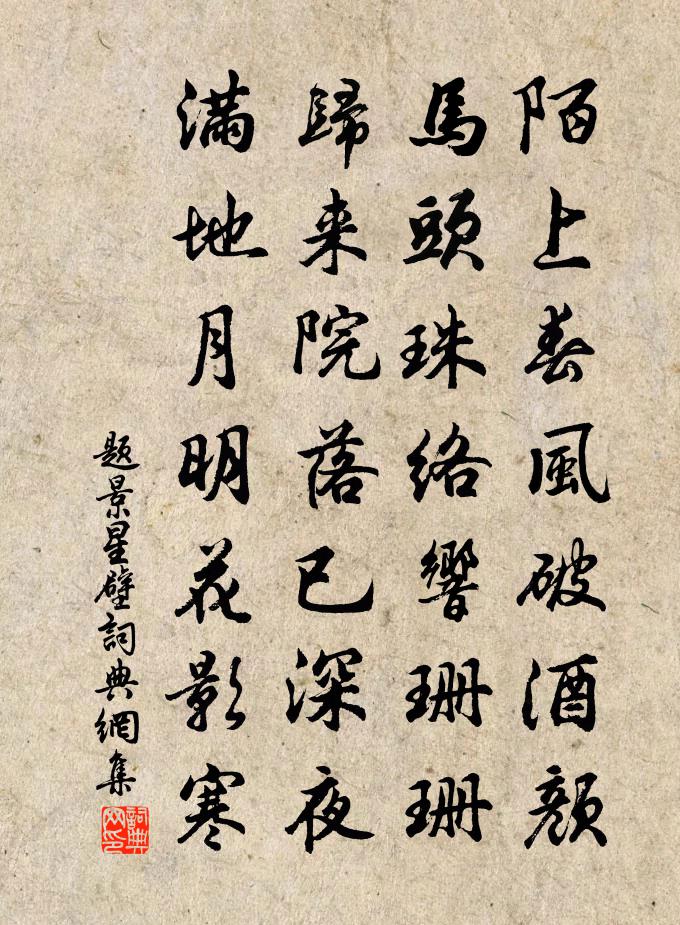 陌上春風破酒顏
馬頭珠絡響珊珊
歸来院落已深夜
滿地月明花影寒
題景星壁詞典網集
詞典网印